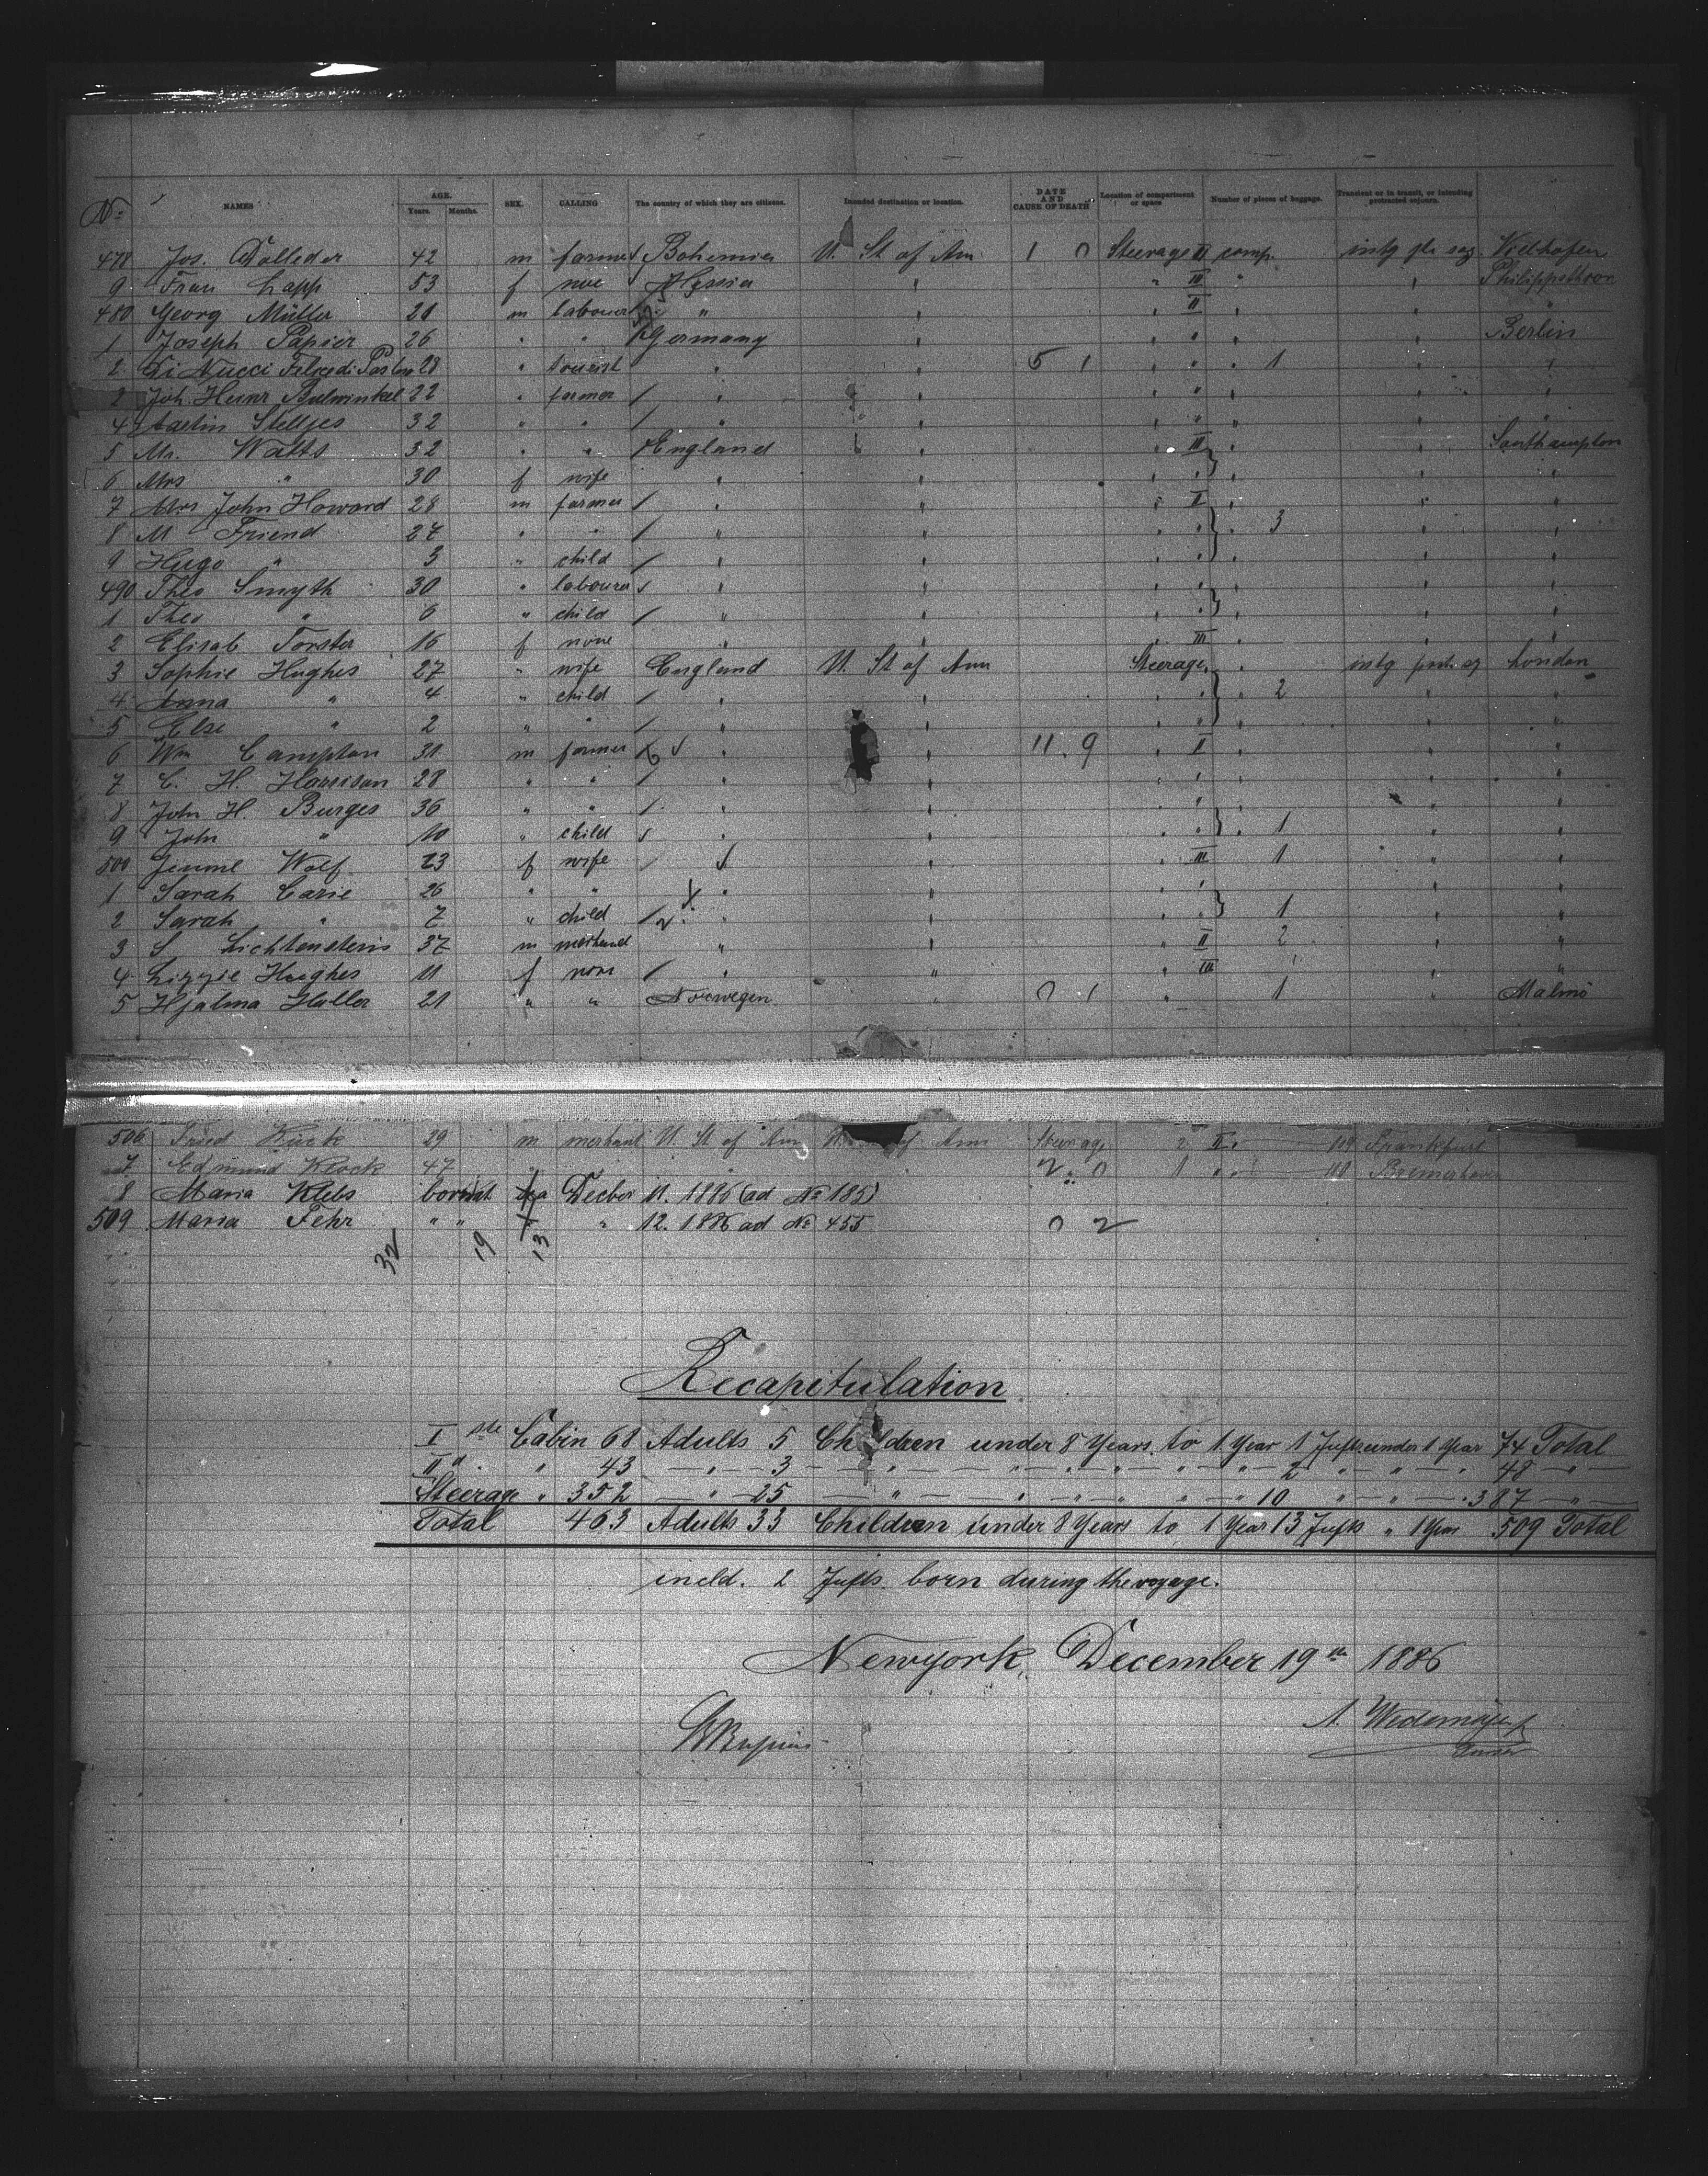 No NAMES AGE. Years. Months. SEX. CALLING The country of which they are citizens. Intended destination or location. DATE AND CAUSE OF DEATH Location of compartment or space Number of pieces of baggage. Transient or in transit, or intending protracted sojourn.
478 Jos. Dolleder 42 m farmer Bohemia U. St of Am 1 0 Steerage II comp. intg Vielshofen
9 Frau Lapp 53 f Hessia " III "
480 Georg Müller 21 m labourer " " " II " "
1 Joseph Papier 26 " " Germany " " " " Berlin
2 Di Nucci 28 " tourist " " 5 1 " " 1 " "
2 Joh. Heinr Bulwinkel 22 " farmer / " " " "
4 Martin Stelljes 32 " " / " " " " "
5 Mr. Watts 32 " " England " " III " Southampton
6 Mrs " 30 f wife " " " " "
7 Mrs John Howard 28 m farmer / " " " II " "
8 M Friend 27 " " / " " " " 3 " "
9 Hugo " 3 " child / " " " " " "
490 Theo Smyth 30 " labourer " " " " " "
1 Theo " 6 " child / " " " " " "
2 Elisab Forster 16 f none " " " III " " "
3 Sophie Hughes 27 " wife England U. St of Am Steerage " " intg London
4 Anna " 4 " child / " " " " 2 " "
5 Else " 2 " " / " " " " " "
6 Wm Campton 31 m farmer " " 11. 9 " II " " "
7 C. H. Harrison 28 " " / " " " " " " "
8 John H. Burges 36 " " / " " " " " "
9 John " 10 " child " " " " 1 " "
500 Wolf 23 f wife / " " III 1 " "
1 Sarah Carie 26 " " " " " " " "
2 Sarah " 7 " child / " " " " 1 " "
3 S Lichtenstein 37 m merchand " " " II 2 " "
4 Lizzie Hughes 11 f none / " " " III " " "
5 Hjalma Haller 21 " " Norwegen " 0 1 " 1 " Malmö
506 Fried Kück 29 m merchant U. St of Am of Am Steerage 2 II " Frankfurt
7 Edmund Klock 47 " " " " 2 0 1 " " Bremerhaven
8 Maria Klebs born at sea Decber 11. 1886 (ad No 185)
509 Maria Fehr " " " " 12. 1886 ad No 455 0 2
32 19 13
Recapitulation
I ste Cabin 68 Adults 5 Children under 8 Years to 1 Year 1 Infts under 1 Year 74 Total
II " " 43 — " — 3 — " — " — " — " — " — 2 " — " — " 48 — " —
Steerage " 352 — " — 25 — " — " — " — " — " — 10 " — " — " 387 — " —
Total 463 Adults 33 Children under 8 Years to 1 Year 13 Infts " 1 Year 509 Total
incld. 2 Infts. born during the voyage.
Newyork, December 19th 1886
A. Wedemeyer